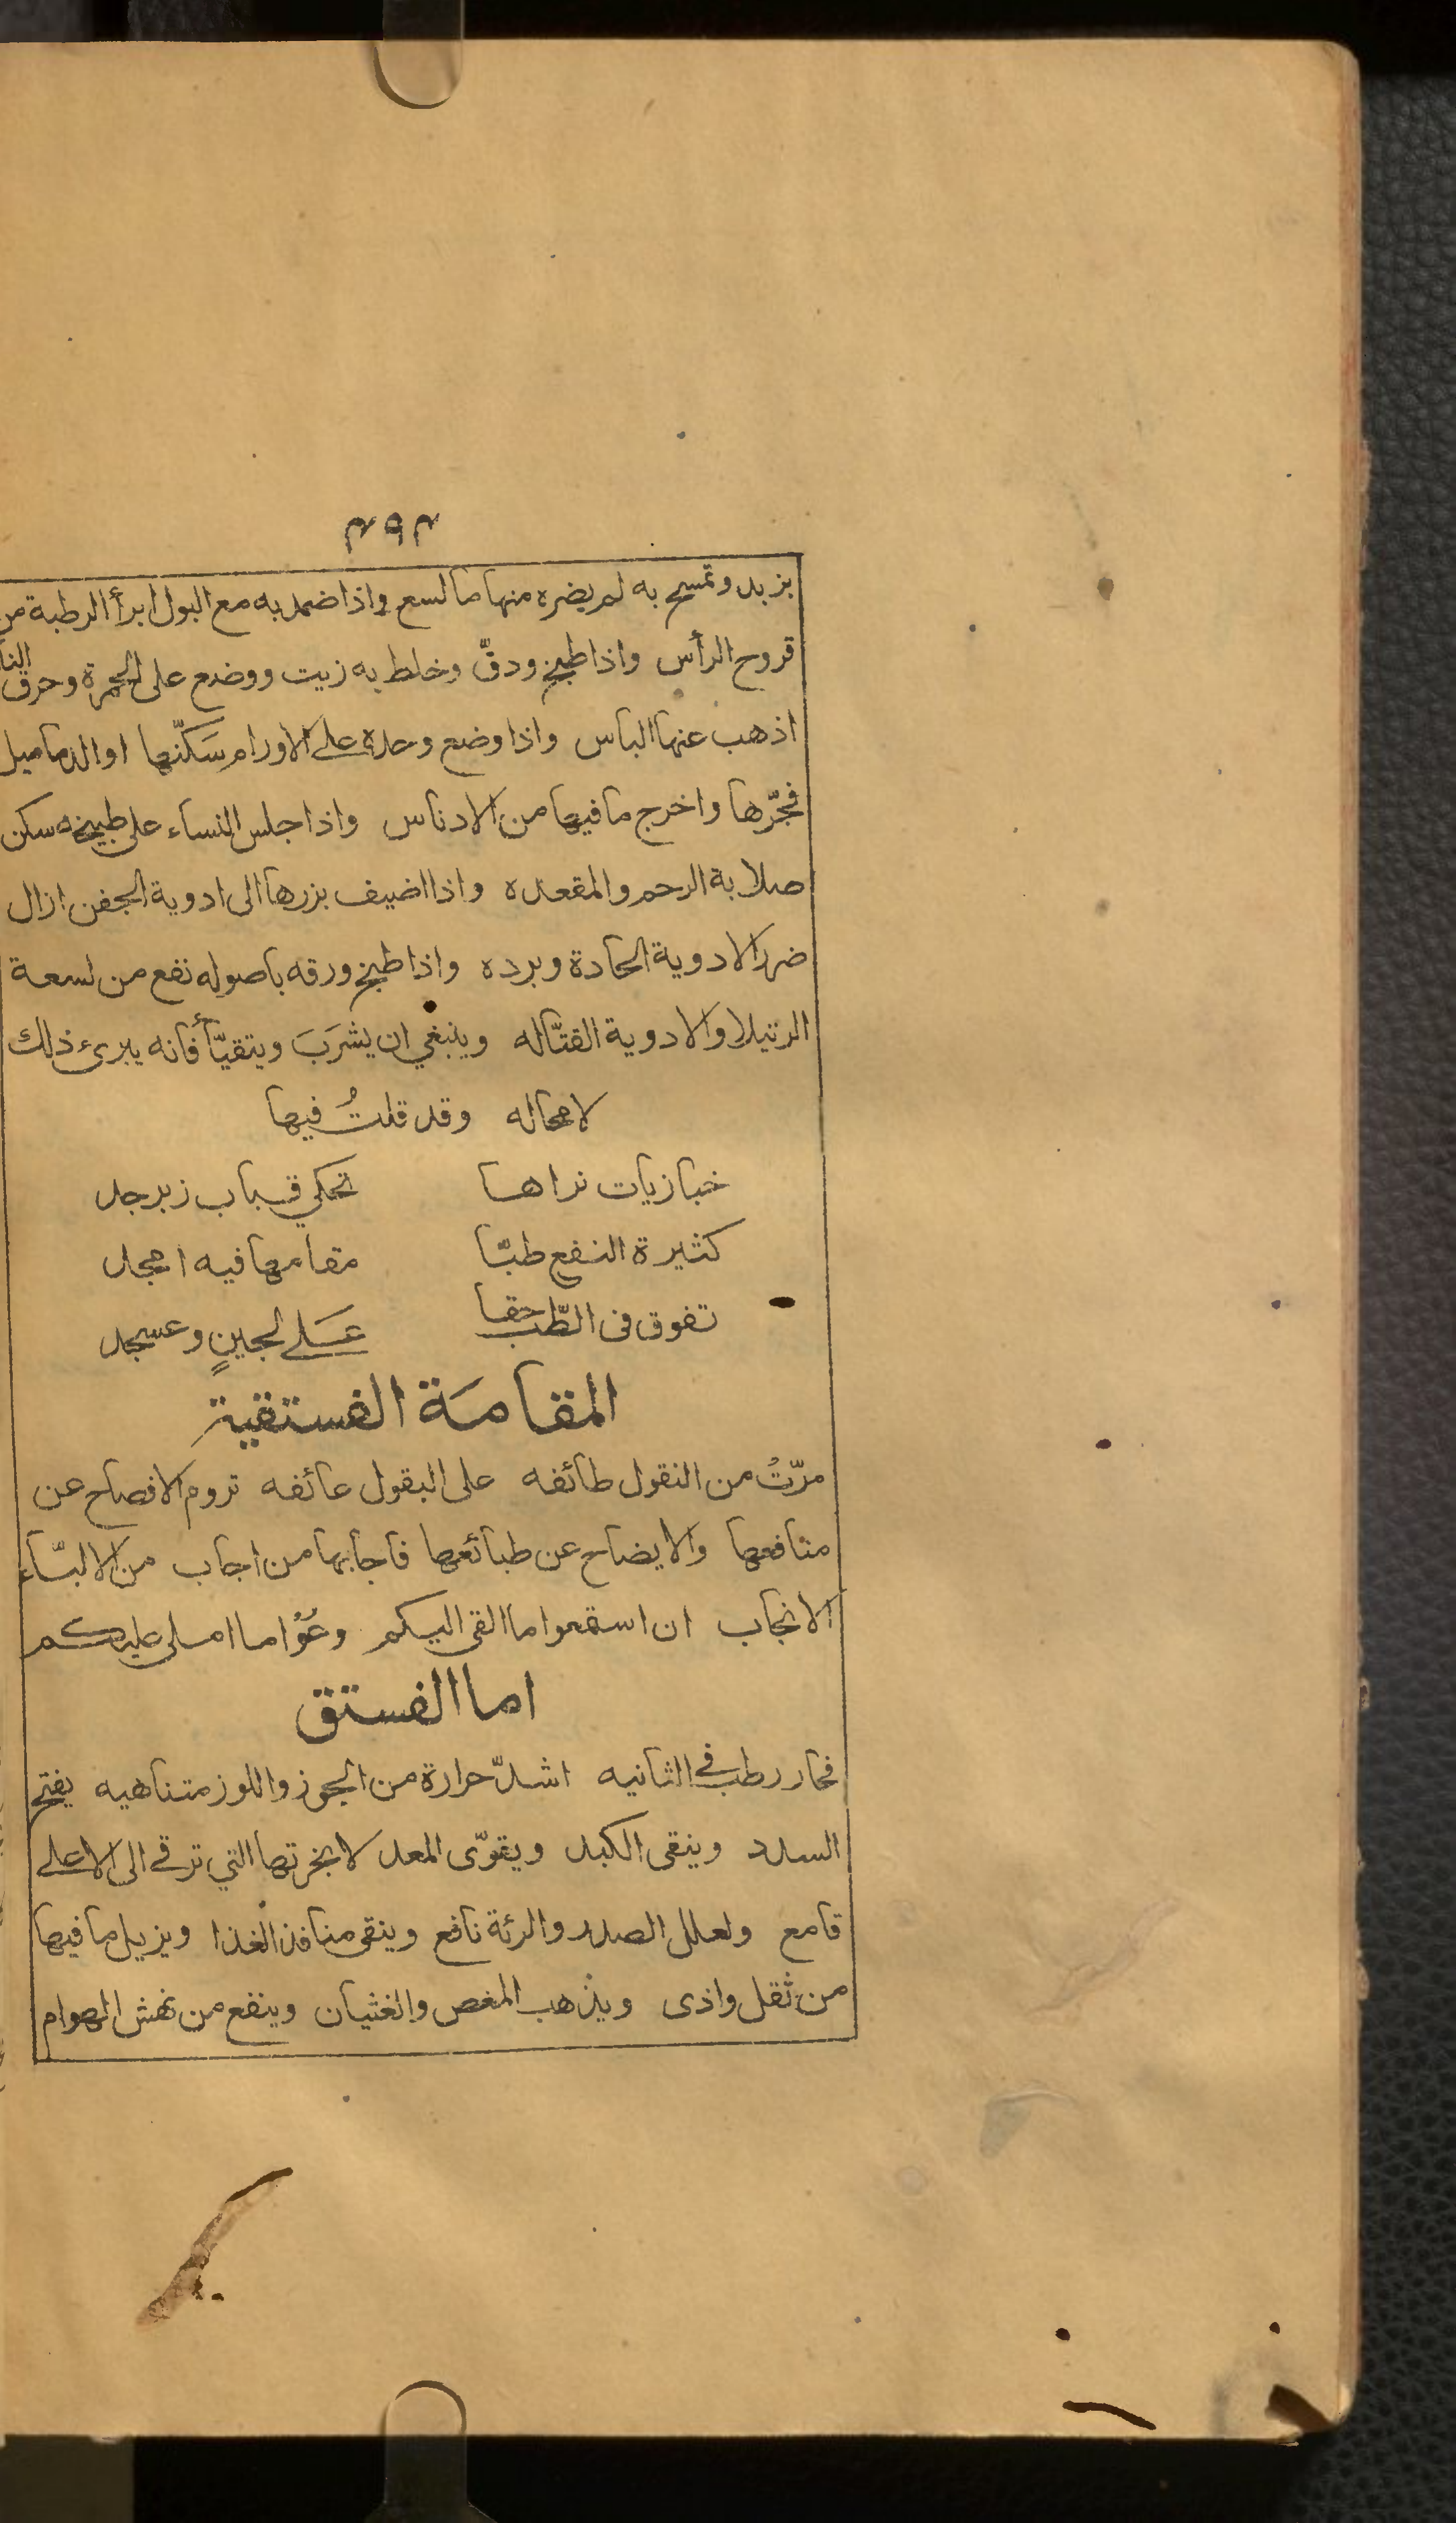 ٣٩٣
بزبد وتمسح به لم يضره منها ما لسع واذا ضمد به مع البول ابرأ الرطبة من
قروح الرأس واذا طبخ ودقّ وخلط به زيت ووضع على الجمرة وحرق النا
اذهب عنها الباس واذا وضع وحده على الاورام سَكّنها او الدماميل
فجّرها واخرج ما فيها من الادناس واذا جلس النساء على طبيخه سكن
صلابة الرحم والمقعده واذا اضيف بزرها الى ادوية الجفن ازال
ضرر الادوية الحادة وبرده واذا طبخ ورقه باصوله نفع من لسعة
الرتيلا والادوية القتّاله وينبغي ان يشرَبَ ويتقيّأ فانه يبرئ ذلك
لا محاله وقد قلتُ فيها
خبازيات نراها تحكي قباب زبرجد
كثيرة النفع طبّا مقامها فيه امجد
تفوق فى الطّب حقا عَلى لجينٍ وعسجد
المقامَة الفستقية
مرّتُ من النقول طائفه على البقول عائفه تروم الافصاح عن
منافعها والايضاح عن طبائعها فاجابها من اجاب من الالبّاء
الانجاب ان استمعوا ما القى اليكم وعُوا ما املى عليكم
اما الفستق
فحار رطب في الثانيه اشدّ حرارة من الجوز واللوز متناهيه يفتح
السدد وينقى الكبد ويقوّى المعد لابخرتها التي ترقى الى الاعلى
قامع ولعلل الصدر والرئة نافع وينقى منافذ الغذا ويزيل ما فيها
من ثقل واذى ويذهب المغص والغثيان وينفع من نهش الهوام